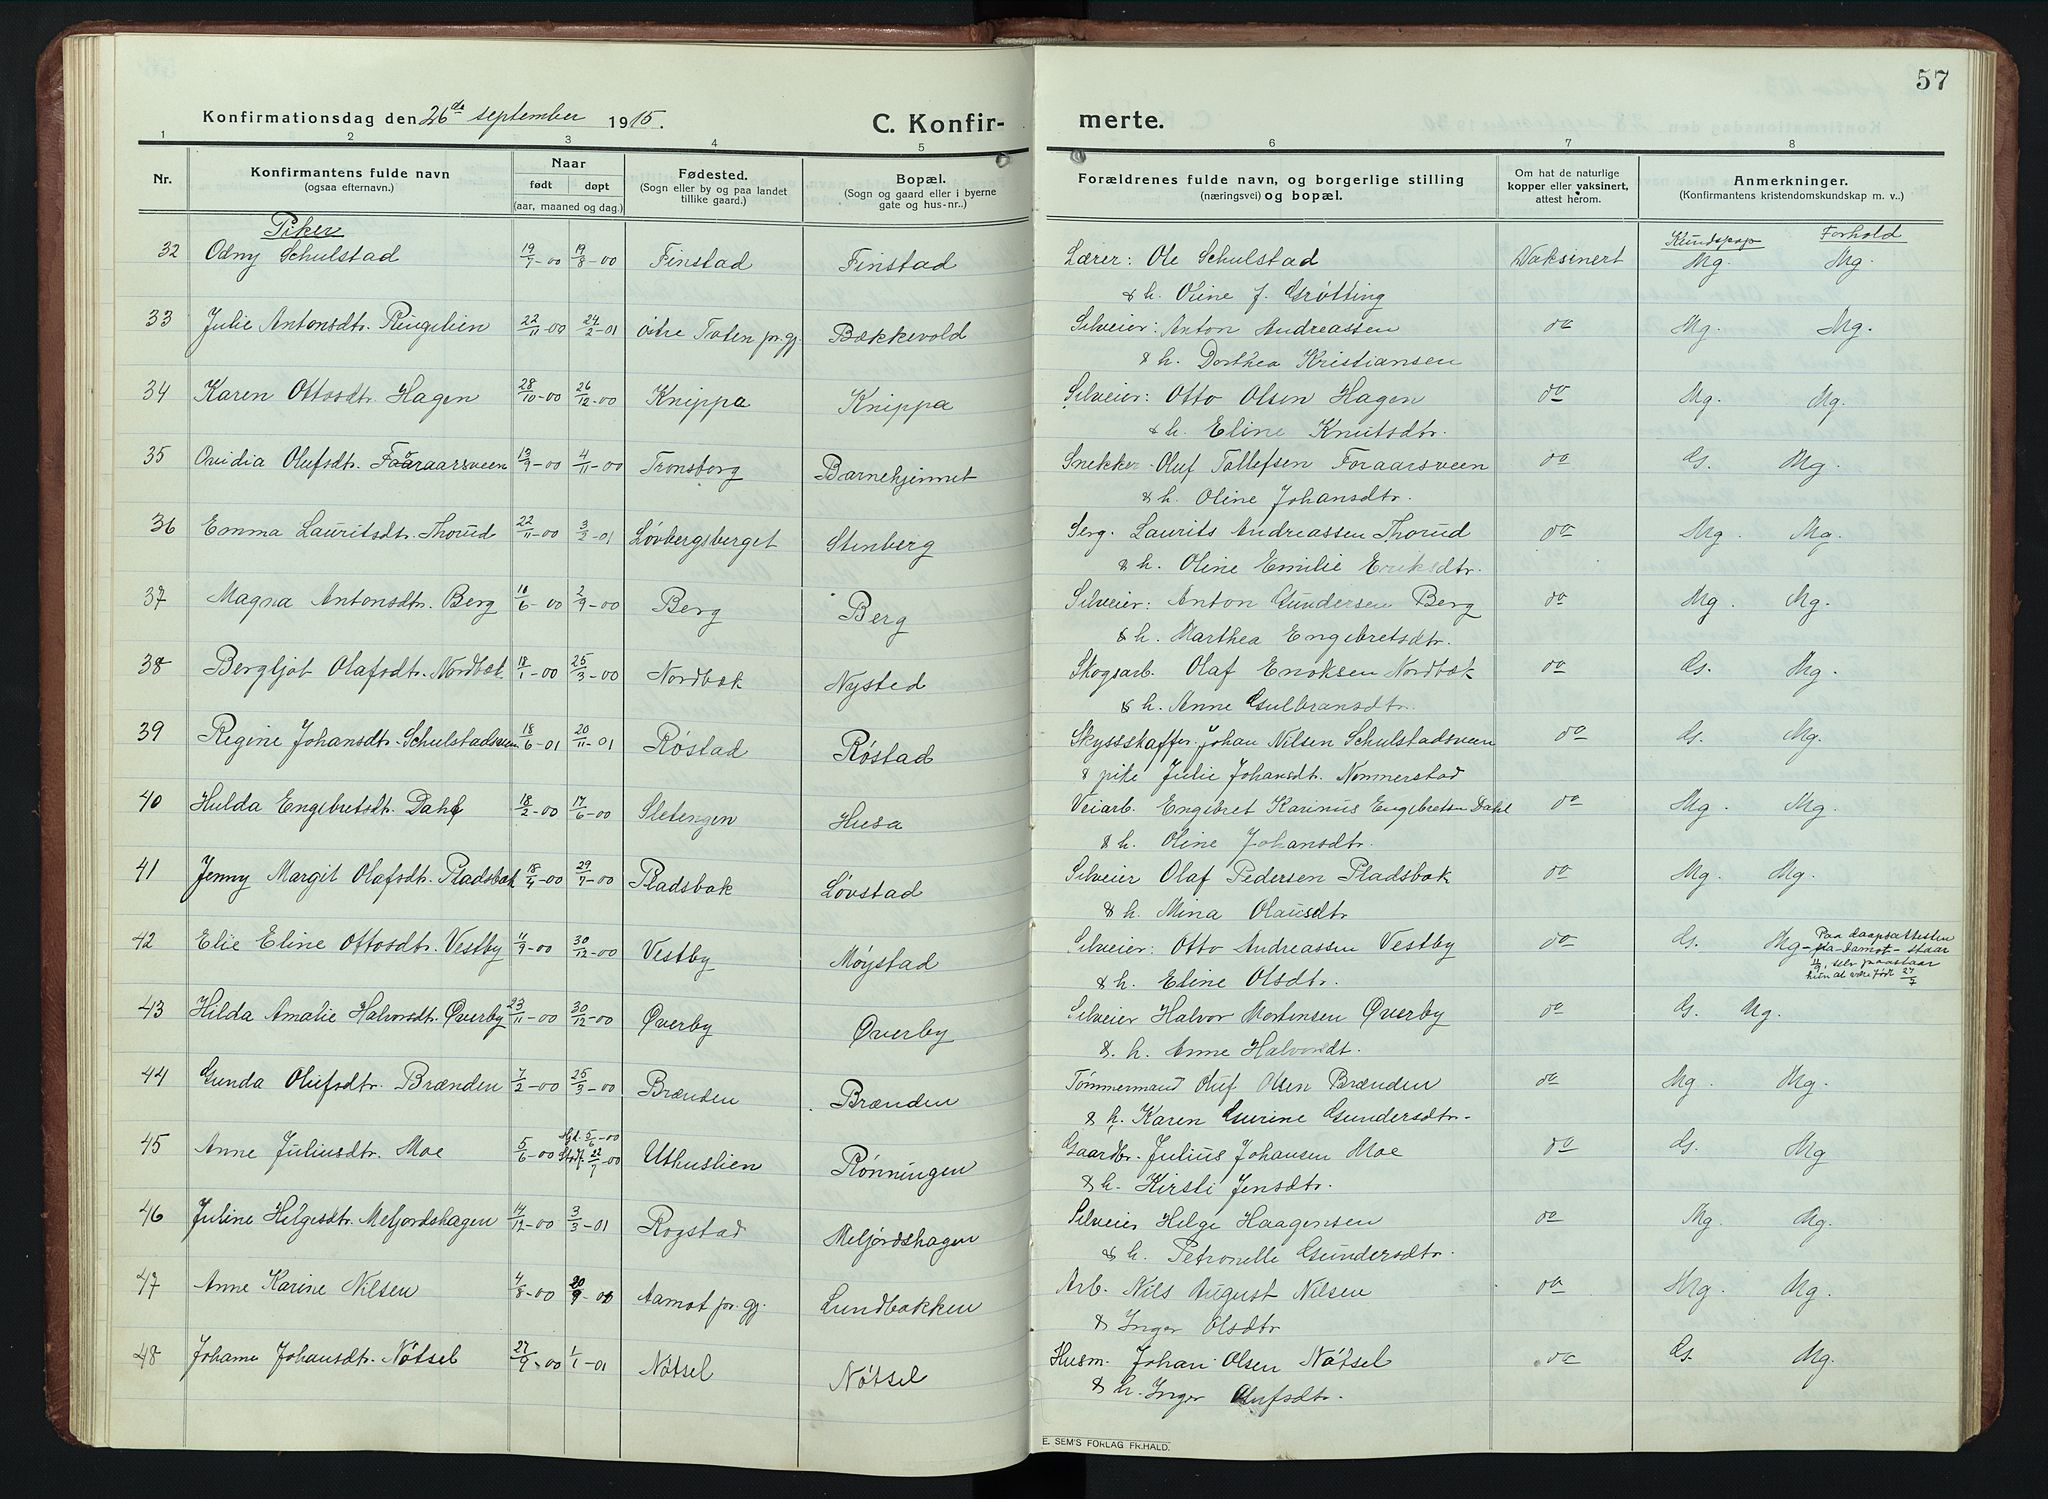 57
Konfirmationsdag den 26de september 1915.
C. Konfirmerte.
1 2 3 4 5 6 7 8
Nr.
Konfirmantens fulde navn
(ogsaa efternavn.)
Naar
født døpt
(aar, maaned og dag.)
Fødested.
(Sogn eller by og paa landet
tillike gaard.)
Bopæl.
(Sogn og gaard eller i byerne
gate og hus-nr..)
Forældrenes fulde navn, og borgerlige stilling
(næringsvei) og bopæl.
Om hat de naturlige
kopper eller vaksinert,
attest herom.
Anmerkninger.
(Konfirmantens kristendomskundskap m. v..)
Piker
Kundskap Forhold
32 Odny Schulstad 19/7-00 19/8-00 Finstad Finstad Lærer: Ole Schulstad Vaksinert Mg. Mg.
& h. Oline f. Grötting
33 Julie Antonsdtr. Ringelien 22/11-00 24/2-01 östre Toten pr.gj. Bækkevold Selveier: Anton Andreassen do Mg. Mg.
& h. Dorthea Kristiansen
34 Karen Ottosdtr. Hagen 28/10-00 26/12-00 Knippa Knippa Selveier: Otto Olsen Hagen do Mg. Mg.
& h. Eline Knutsdtr.
35 Ovidia Olufsdtr. Foraarsveen 13/9-00 4/11-00 Tronsborg Barnehjemmet Snekker Oluf Tollefsen Foraarsveen do G. Mg.
& h. Oline Johansdtr.
36 Emma Lauritsdtr. Thorud 22/11-00 3/2-01 Lövbergsberget Stenberg Serg. Laurits Andreassen Thorud do Mg. Mg.
& h. Oline Emilie Eriksdtr.
37 Magna Antonsdtr. Berg 10/6-00 2/9-00 Berg Berg Selveier: Anton Gundersen Berg do Mg. Mg.
& h. Marthea Engebretsdtr.
38 Bergljot Olafsdtr. Nordbæk 18/1-00 25/3-00 Nordbæk Nysted Skogsarb. Olaf Enoksen Nordbæk do G. Mg.
& h. Anne Gulbransdtr.
39 Regine Johansdtr. Schulstadsveen 18/6-01 20/11-01 Röstad Röstad Skyssskaffer Johan Nilsen Schulstadsveen do G. Mg.
& pike Julie Johansdtr. Nommerstad
40 Hulda Engebretsdtr. Dahl 18/2-00 17/6-00 Sletengen Husa Veiarb. Engebret Karinus Engebretsen Dahl do Mg. Mg.
& h. Oline Johansdtr.
41 Jenny Margit Olafsdtr. Pladsbæk 18/4-00 29/7-00 Pladsbæk Lövstad Selveier Olaf Pedersen Pladsbæk do Mg. Mg.
& h. Mina Olausdtr
42 Elie Eline Ottosdtr. Vestby 11/9-00 30/12-00 Vestby Möystad Selveier: Otto Andreassen Vestby do G. Mg - Paa daapsattesten
& h. Eline Olsdtr. fra Aamot staar
11/9, selv paastaar
hun at være født 27/7
43 Hilda Amalie Halvorsdtr. Øverby 23/11-00 30/12-00 Øverby Øverby Selveier Halvor Mortensen Øverby do G. Mg.
& h. Anne Halvorsdt.
44 Gunda Olufsdtr. Brænden 7/2-00 25/3-00 Brænden Brænden Tømmermand Oluf Olsen Brænden do Mg. Mg.
& h. Karen Gurine Gundersdtr.
45 Anne Juliusdtr. Moe 5/6-00 Hjd. 5/6-00 Stadf. 22/7-00 Uthuslien Rønningen Gaardbr. Julius Johansen Moe do G. Mg
& h. Kirsti Jensdtr.
46 Juline Helgesdtr. Meljordshagen 14/12-00 3/3-01 Rogstad Meljordshagen Selveier Helge Haagensen do Mg. Mg.
& h. Petronelle Gundersdtr.
47 Anne Karine Nilsen 4/8-00 20/9-00 Aamot pr. gj. Lundbakken Arb. Nils August Nilsen do Mg. Mg.
& Inger Olsdtr
48 Johanne Johansdtr. Nötsel 27/9-00 1/1-01 Nötsel Nötsel Husm. Johan Olsen Nötsel do G. Mg.
& h. Inger Olufsdtr.
E. SEM'S FORLAG FR.HALD.